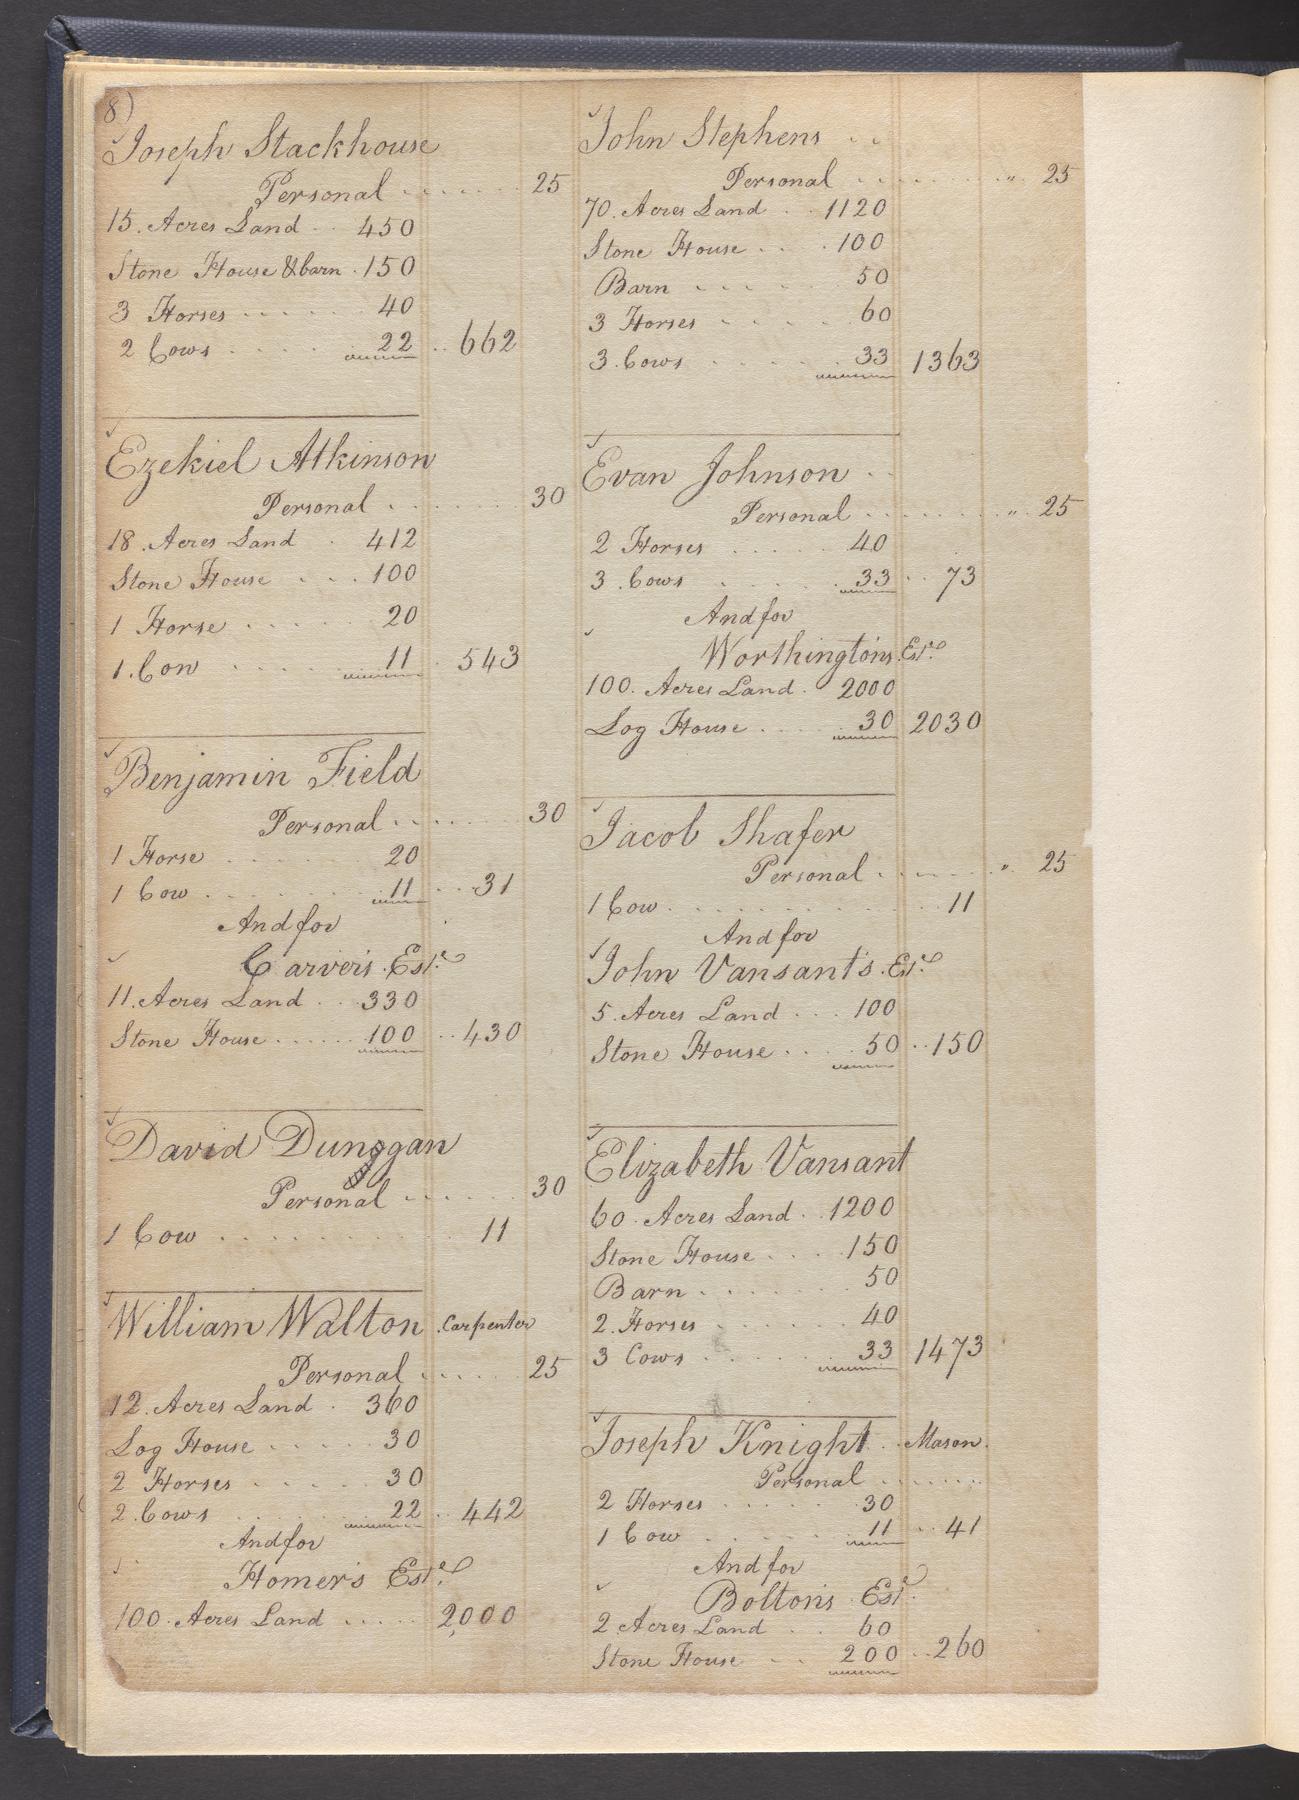 8)
Joseph Stackhouse
Personal ...... 25
15. Acres Land .. 450
Stone House & barn . 150
3 Horses ...... 40
2 Cows ..... 22 .. 662
Ezekiel Atkinson
Personal ...... 30
18. Acres Land . 412
Stone House ... 100
1 Horse ..... 20
1. Cow ..... 11 . 543
Benjamin Field
Personal ...... 30
1 Horse .... 20
1 Cow ...... 11 ... 31
And for
Carver's Est.e
11. Acres Land .. 330
Stone House ...... 100 .. 430
David Dunggan
Personal ...... 30
1 Cow .......... 11
William Walton . Carpenter
Personal ...... 25
12. Acres Land . 360
Log House ..... 30
2 Horses .... 30
2. Cows ..... 22 .. 442
And for
Homer's Est.e
100. Acres Land ..... 2,000
John Stephens ..
Personal ........ " . 25
70. Acres Land .. 1120
Stone House ... 100
Barn ...... 50
3 Horses ..... 60
3. Cows ..... 33 1363
Evan Johnson ..
Personal ........ " . 25
2 Horses ..... 40
3. Cows ..... 33 .. 73
And for
Worthington's Est.e
100. Acres Land . 2000
Log House ..... 30 2030
Jacob Shafer
Personal ....... " 25
1 Cow .............. 11
And for
John Vansant's . Est.e
5. Acres Land ... 100
Stone House .... 50 .. 150
Elizabeth Vansant
60. Acres Land . 1200
Stone House ... 150
Barn ....... 50
2. Horses ...... 40
3 Cows ...... 33 1473
Joseph Knight .. Mason.
Personal .......
2 Horses ..... 30
1 Cow ...... 11 .. 41
And for
Bolton's Est.e
2 Acres Land .. 60
Stone House .. 200 .. 260